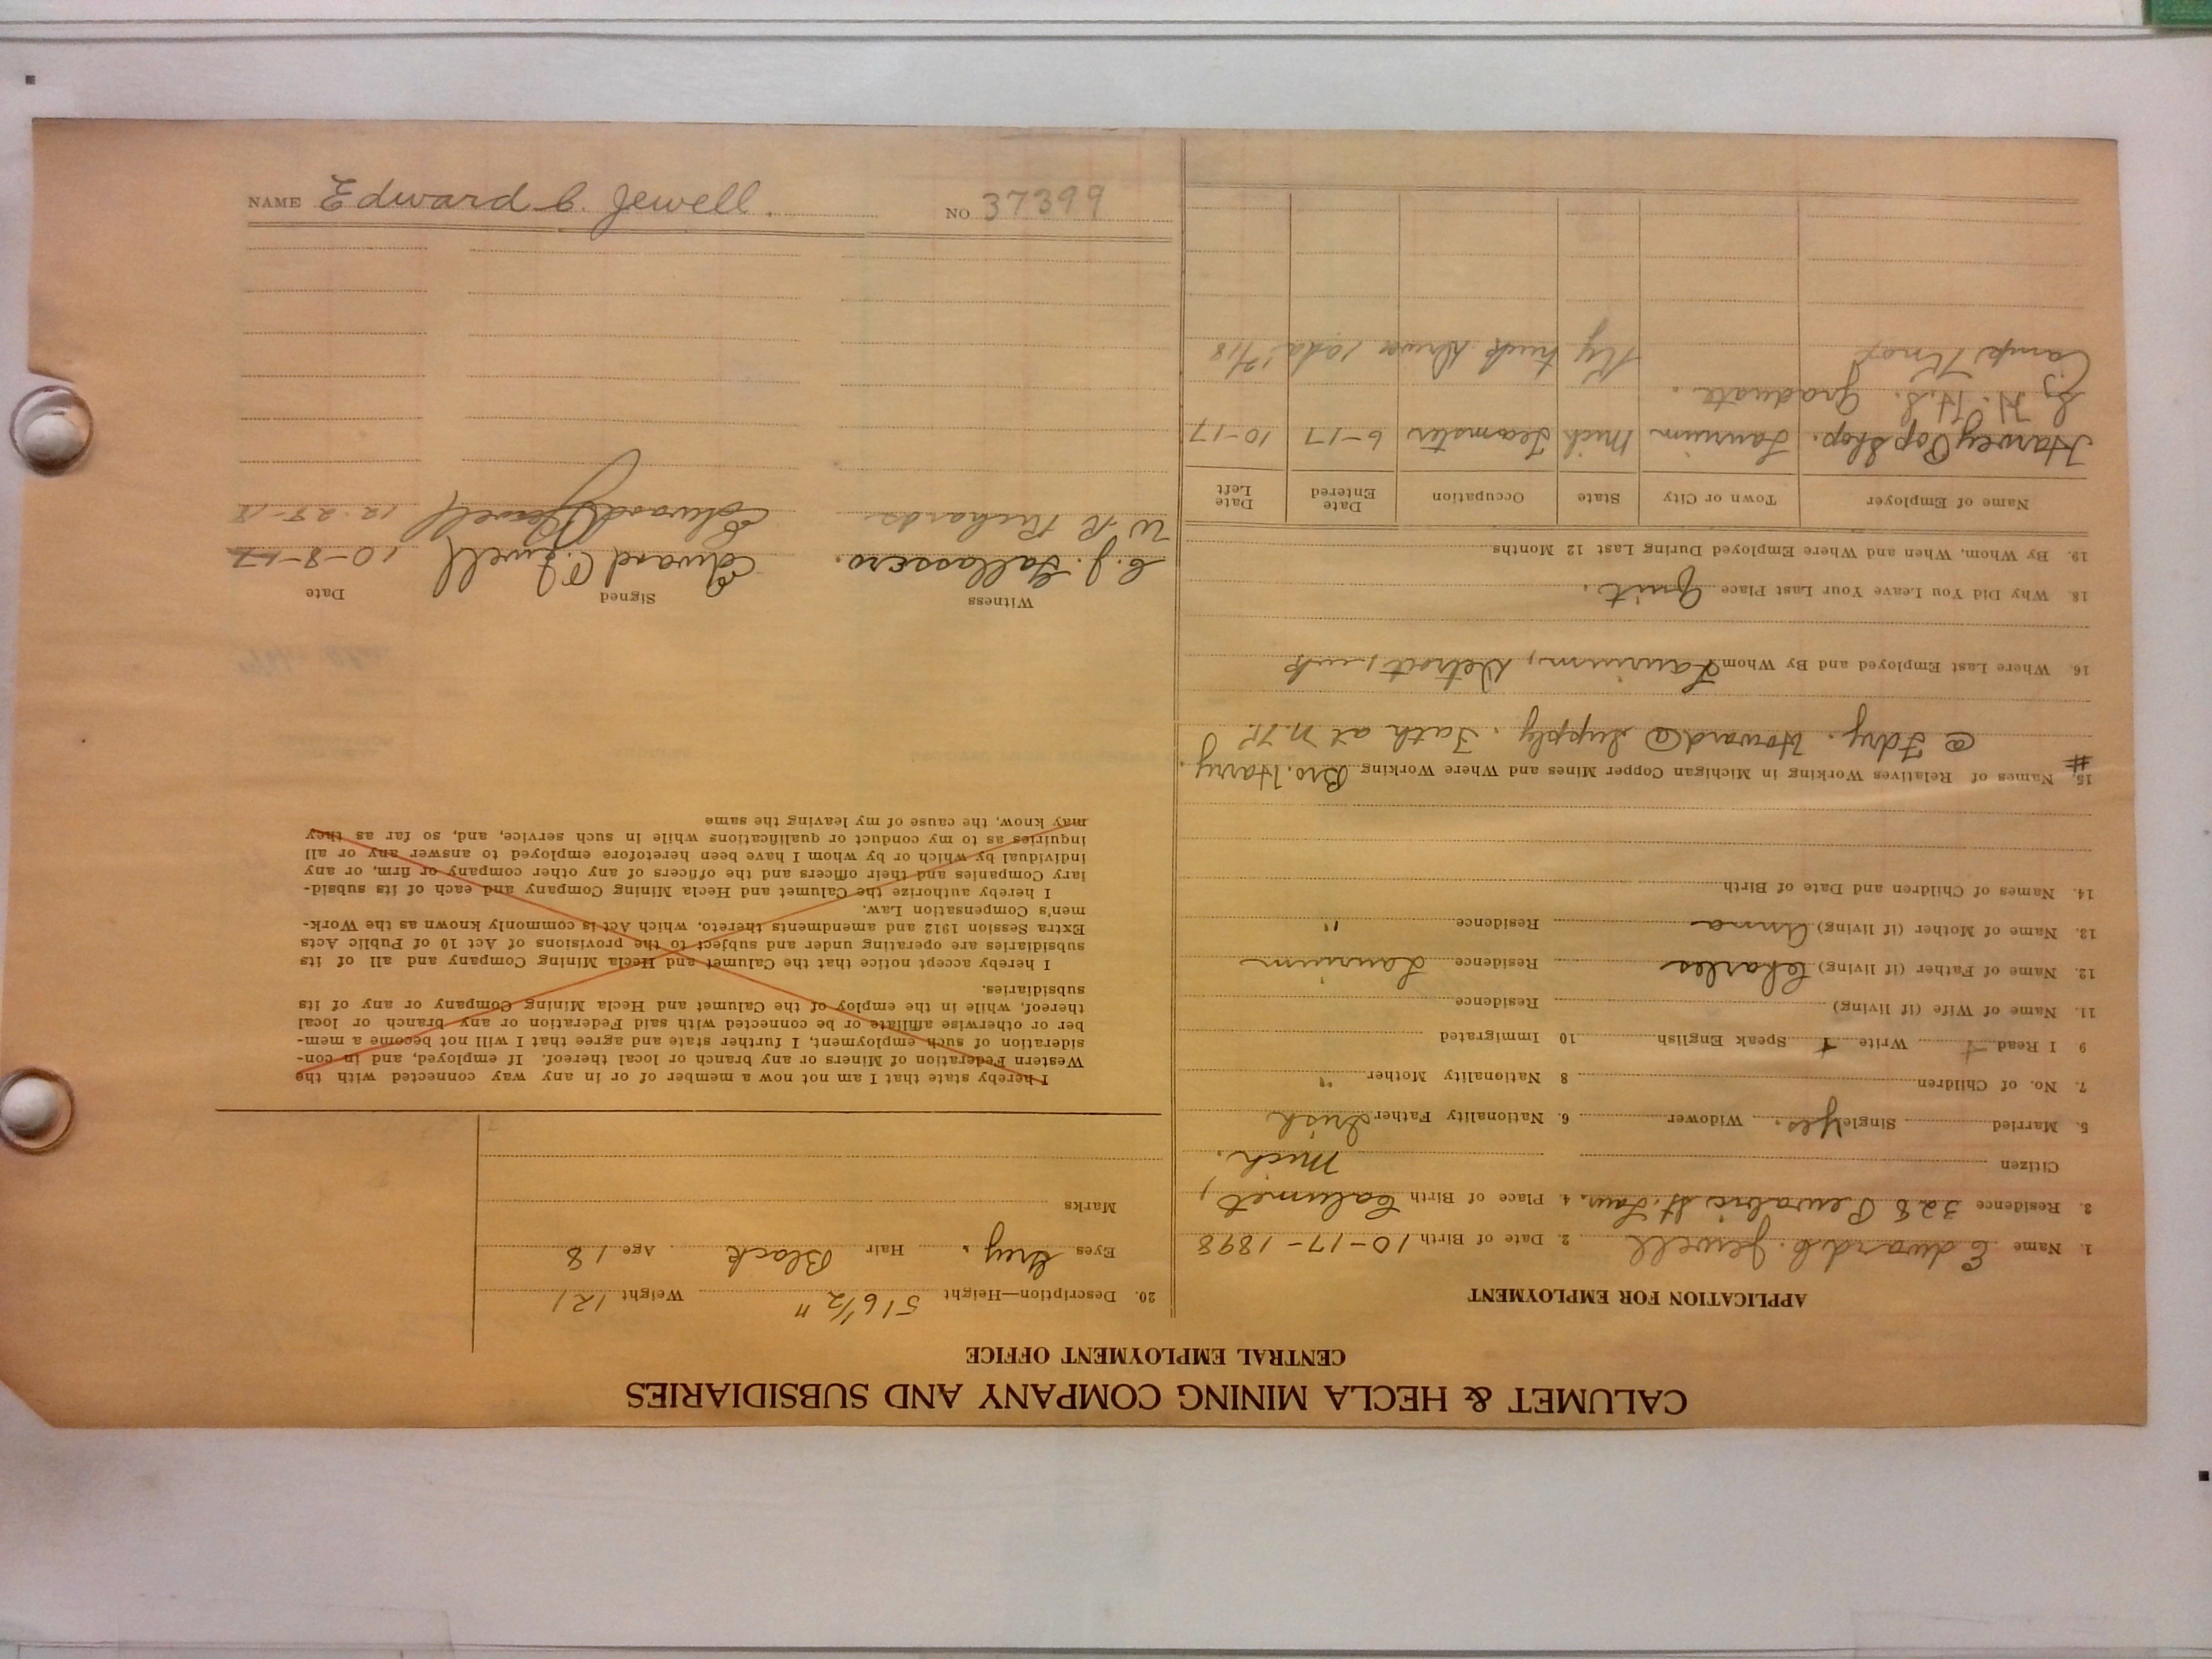 CALUMET & HECLA MINING COMPANY AND SUBSIDIARIES
CENTRAL EMPLOYMENT OFFICE
APPLICATION FOR EMPLOYMENT
1. Name Edward C. Jewell 2. Date of Birth 10-17-1898
3. Residence 328 Pewabic St. Laur. 4. Place of Birth Calumet,
Citizen Mich.
5. Married Single Yes. Widower 6. Nationality Father Irish
7. No. of Children 8 Nationality Mother "
9 I Read † Write † Speak English 10 Immigrated
11. Name of Wife (if living) Residence
12. Name of Father (if living) Charles Residence Laurium
13. Name of Mother (if living) Anna Residence "
14. Names of Children and Date of Birth
15. Names of Relatives Working in Michigan Copper Mines and Where Working Bro. Harry.
# @ Fdry. Howard @ Supply. Fath at N.K.
16. Where Last Employed and By Whom Laurium, Detroit,
18. Why Did You Leave Your Last Place Quit.
19. By Whom, When and Where Employed During Last 12 Months
Name of Employer Town or City State Occupation Date Entered Date Left
Harvey Pop Shop. Laurium Mich Teamster 6-17 10-17
H.S. Graduate.
Camp Knox Ky truck driver 12/18
20. Description—Height 5' 6 1/2" Weight 121
Eyes Grey. Hair Black Age 18
Marks
I hereby state that I am not now a member of or in any way connected with the
Western Federation of Miners or any branch or local thereof. If employed, and in con-
sideration of such employment, I further state and agree that I will not become a mem-
ber or otherwise affiliate or be connected with said Federation or any branch or local
thereof, while in the employ of the Calumet and Hecla Mining Company or any of its
subsidiaries.
I hereby accept notice that the Calumet and Hecla Mining Company and all of its
subsidiaries are operating under and subject to the provisions of Act 10 of Public Acts
Extra Session 1912 and amendments thereto, which Act is commonly known as the Work-
men's Compensation Law.
I hereby authorize the Calumet and Hecla Mining Company and each of its subsid-
iary Companies and their officers and the officers of any other company or firm, or any
individual by which or by whom I have been heretofore employed to answer any or all
inquiries as to my conduct or qualifications while in such service, and, so far as they
may know, the cause of my leaving the same
Witness Signed Date
C. J. Gallassero. Edward C. Jewell 10-8-17
W R Richards Edward Jewell 12-28-18
NAME Edward C. Jewell. NO 37399